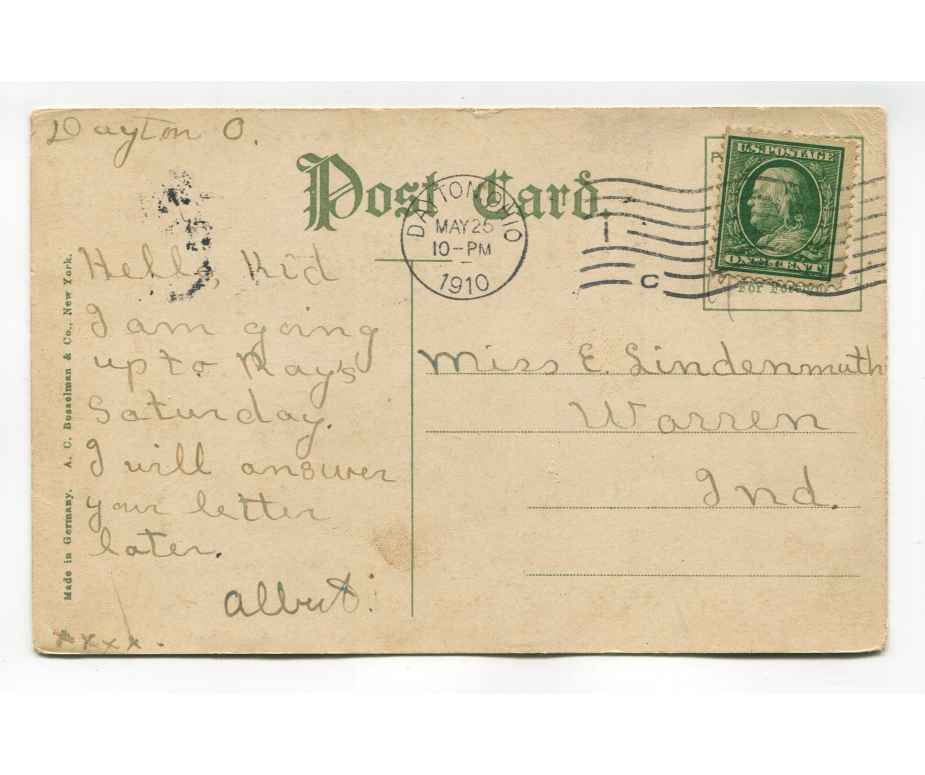 Dayton O.
Post Card.
DAYTON, OHIO
MAY 25
10-PM
1910
1
C
U.S. POSTAGE
ONE CENT
Hello, Kid
I am going
up to Kays
Saturday.
I will answer
your letter
later.
Albert.
xxxx.
Miss E. Lindenmuth
Warren
Ind.
Made in Germany. A. C. Bosselman & Co., New York.